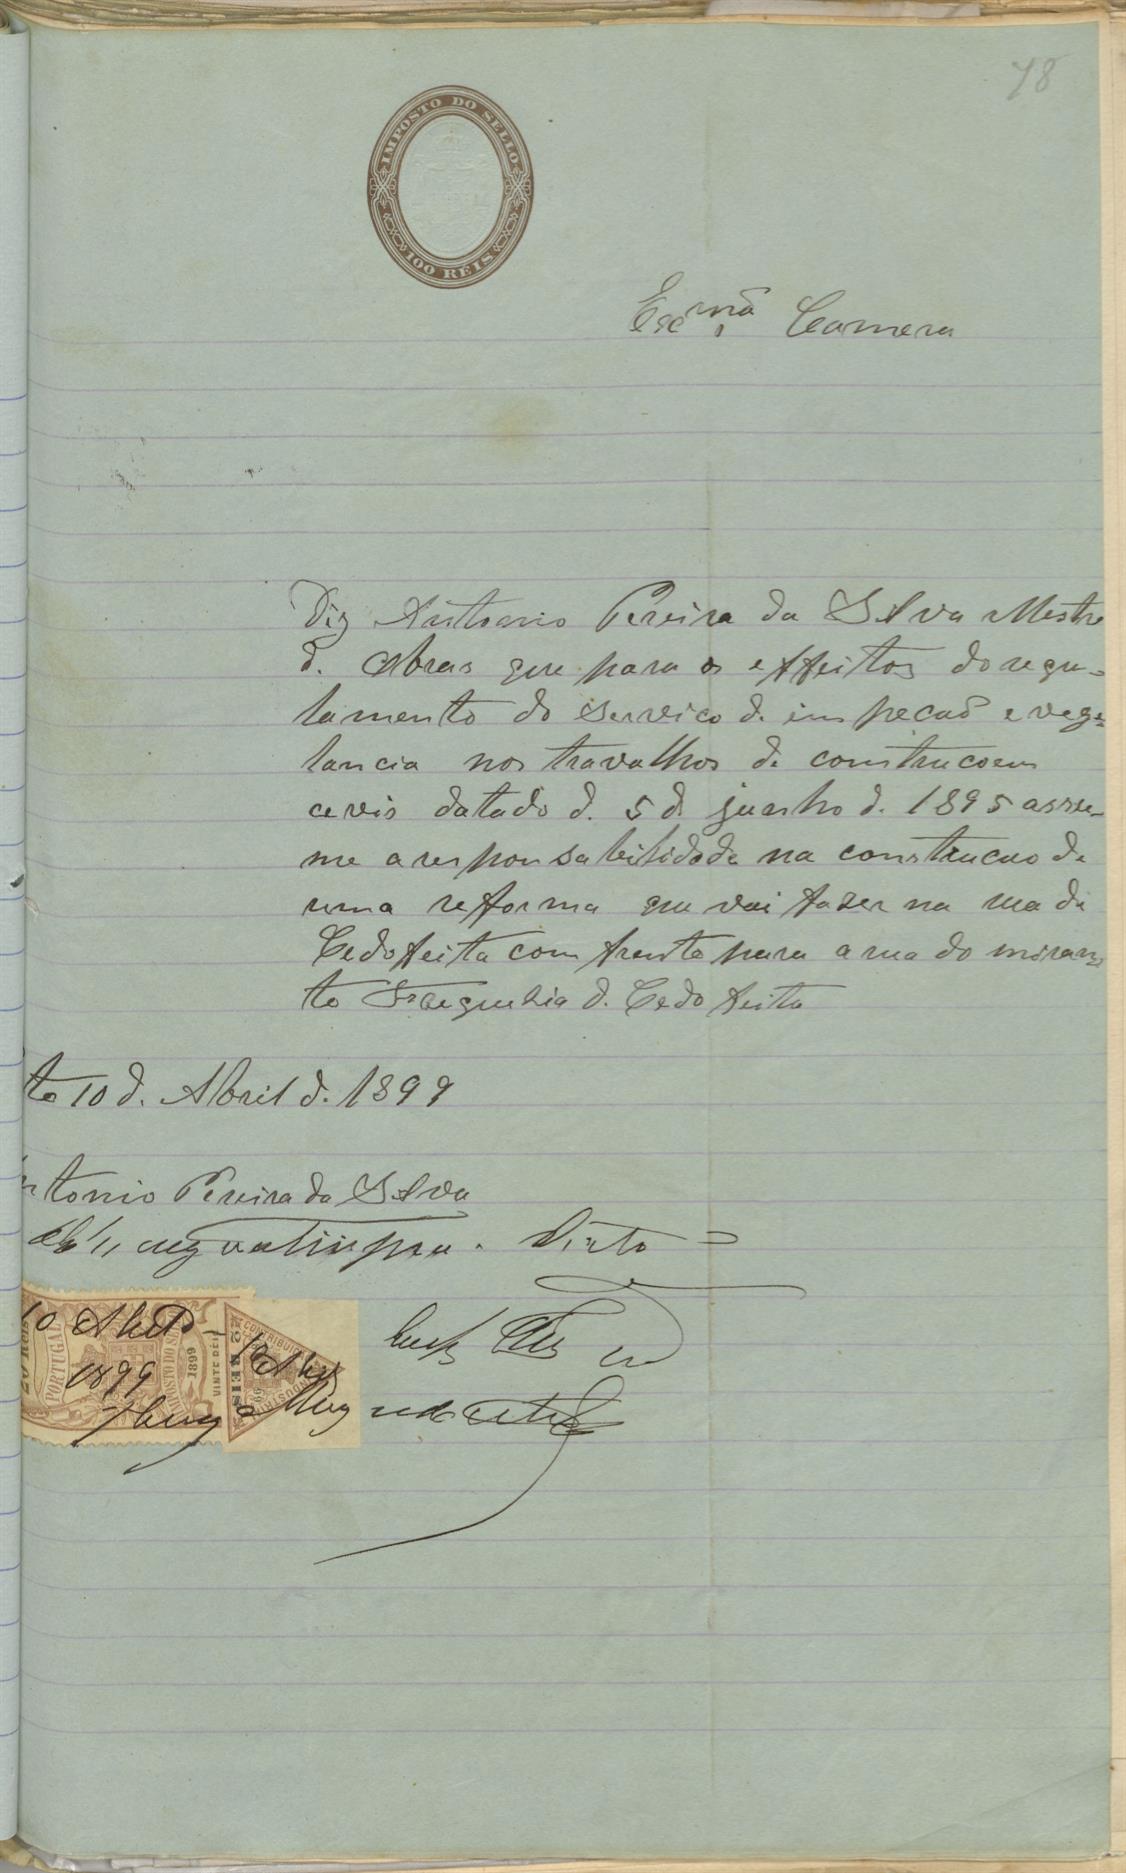 78
IMPOSTO DO SELLO
100 RÉIS
Excmã Camera
Diz Antonio Pereira da Silva Mestre
d. obras que para os effeitos do regu-
lamento do servico de inspecaõ e vege-
lancia nos travalhos de construcoens
cevis datado d. 5 d. junho d. 1895 assu-
me a responsabilidade na construcao de
uma reforma que vai fazer na rua de
Cedofeita com frente para a rua do miran-
te Freguesia d. Cedofeita
to 10 d. Abril d. 1899
ntonio Pereira da Silva
10 Abril
1899
PORTUGAL
IMPOSTO DO SELLO
1899
VINTE RÉIS
CONTRIBUIÇÃO INDUSTRIAL
2 RÉIS